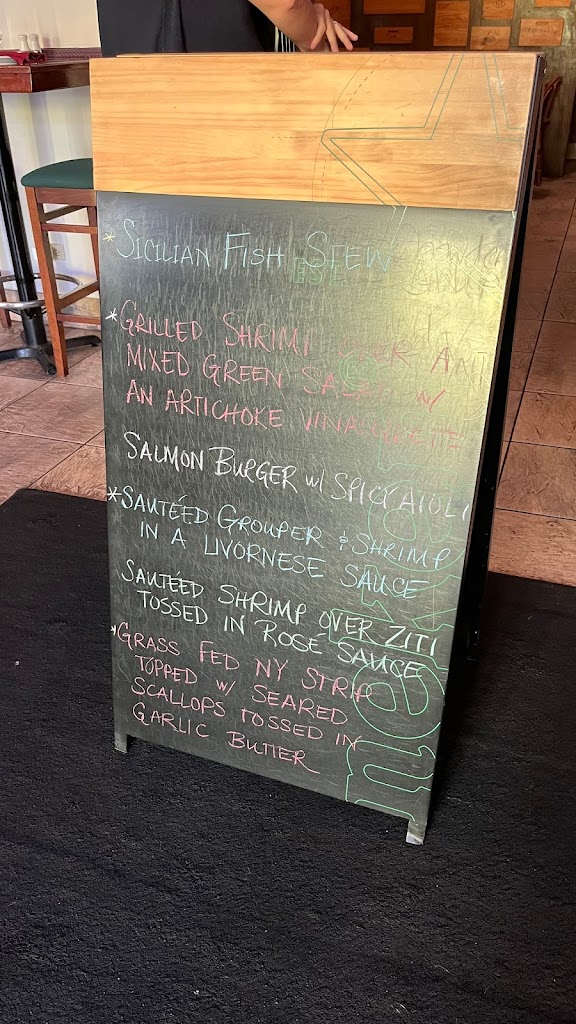 * SICILIAN FISH STEW
* GRILLED SHRIMP OVER AN
MIXED GREEN SALAD W/
AN ARTICHOKE VINAIGRETTE
SALMON BURGER w/ SPICY AIOLI
* SAUTÉED GROUPER & SHRIMP
IN A LIVORNESE SAUCE
SAUTÉED SHRIMP OVER ZITI
TOSSED IN ROSÉ SAUCE
* GRASS FED NY STRIP
TOPPED W/ SEARED
SCALLOPS TOSSED IN
GARLIC BUTTER